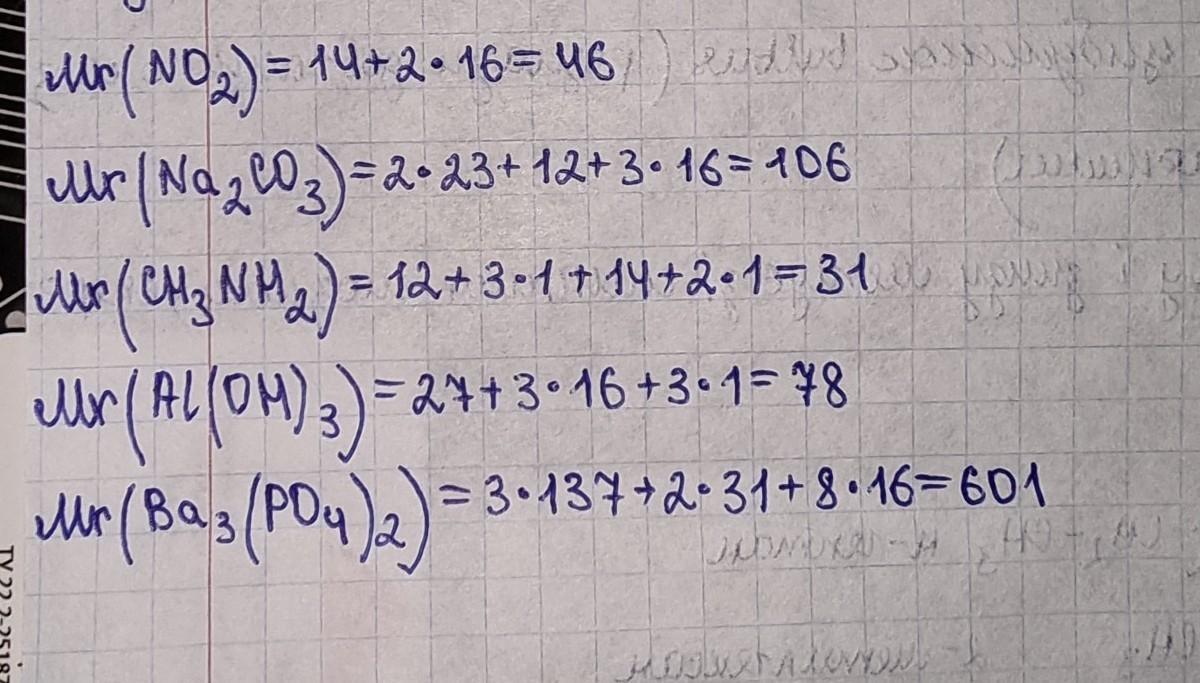 Mr(NO₂) = 14 + 2 · 16 = 46
Mr(Na₂CO₃) = 2 · 23 + 12 + 3 · 16 = 106
Mr(CH₃NH₂) = 12 + 3 · 1 + 14 + 2 · 1 = 31
Mr(Al(OH)₃) = 27 + 3 · 16 + 3 · 1 = 78
Mr(Ba₃(PO₄)₂) = 3 · 137 + 2 · 31 + 8 · 16 = 601